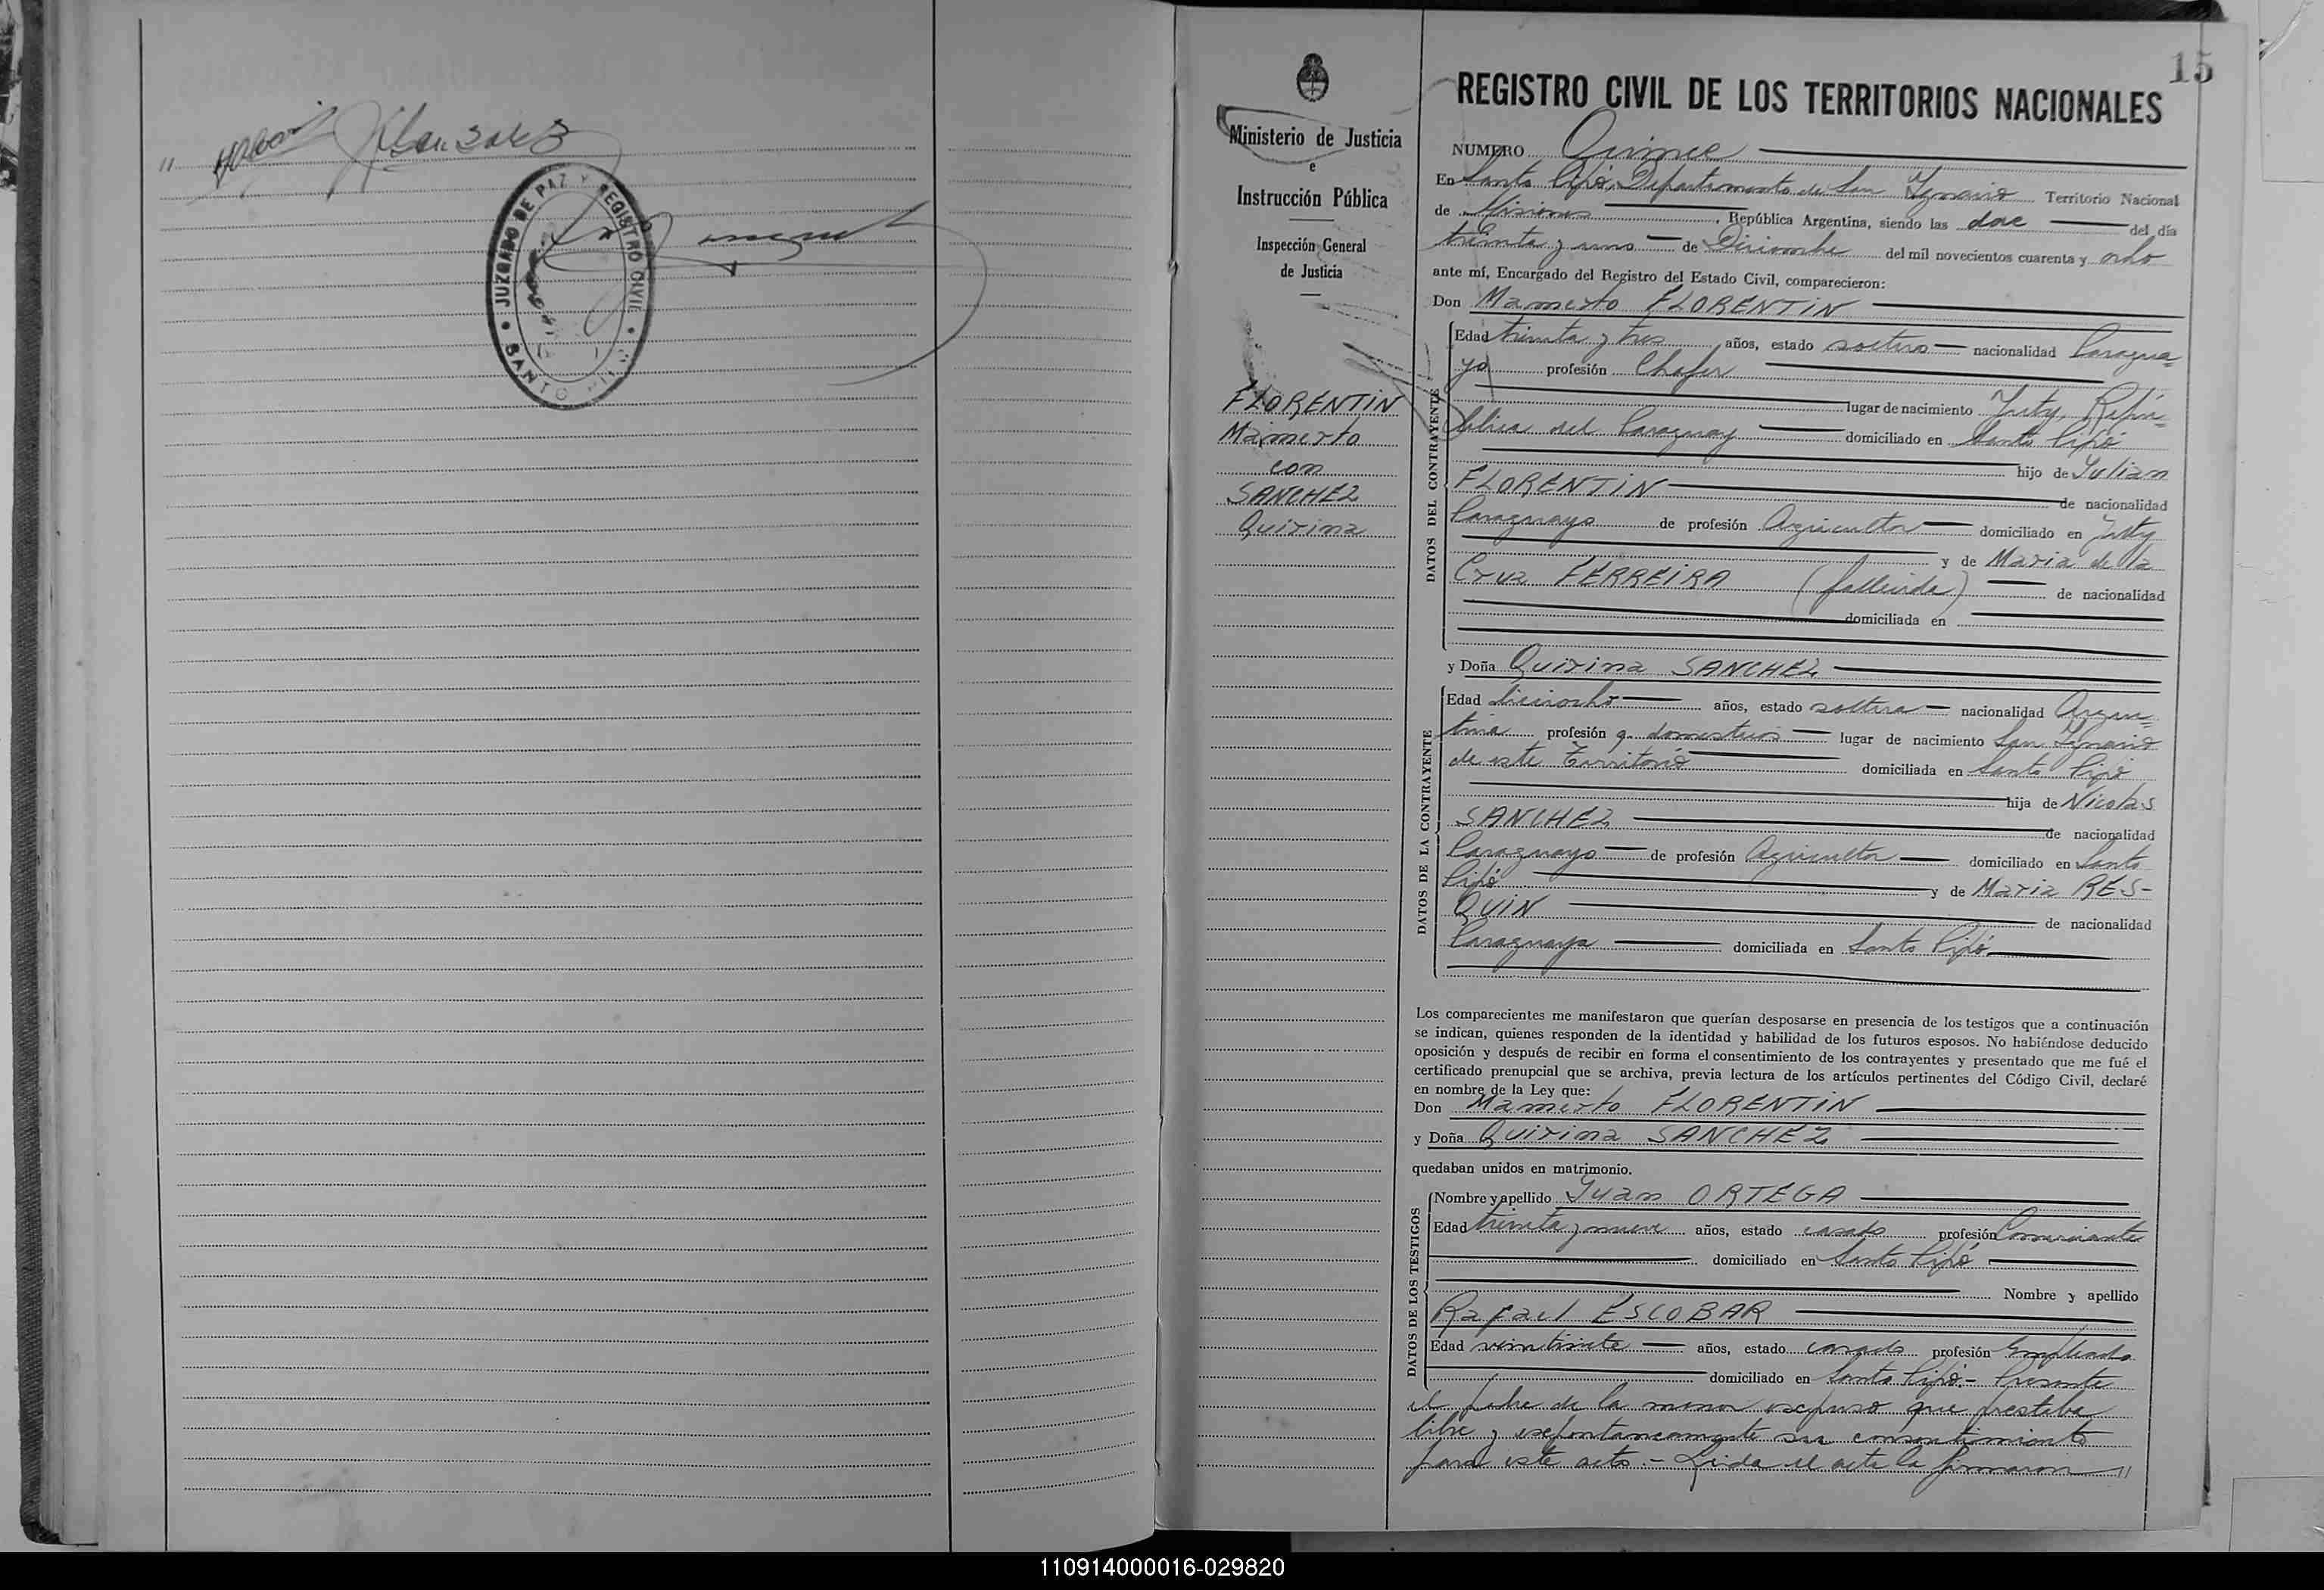 "
González
JUZGADO DE PAZ Y REGISTRO CIVIL
SANTO
15
Ministerio de Justicia
e
Instrucción Pública
Inspección General
de Justicia
FLORENTIN
Mamerto
con
SANCHEZ
Quirina
REGISTRO CIVIL DE LOS TERRITORIOS NACIONALES
NUMERO Quince
En Santo Pipó, Departamento de San Ignacio Territorio Nacional
de Misiones, República Argentina, siendo las doce del día
treinta y uno de Diciembre del mil novecientos cuarenta y ocho
ante mí, Encargado del Registro del Estado Civil, comparecieron:
Don Mamerto FLORENTIN
DATOS DEL CONTRAYENTE
Edad treinta y tres años, estado soltero nacionalidad Paragua=
yo profesión Chofer
lugar de nacimiento Yuty, Repú=
blica del Paraguay domiciliado en Santo Pipó
hijo de Julian
FLORENTIN de nacionalidad
Paraguayo de profesión Agricultor domiciliado en Yuty
y de Maria de la
Cruz FERREIRA (fallecida) de nacionalidad
domiciliada en
y Doña Quirina SANCHEZ
DATOS DE LA CONTRAYENTE
Edad dieciocho años, estado soltera nacionalidad Argen=
tina profesión q. domesticos lugar de nacimiento San Ignacio
de este Territorio domiciliada en Santo Pipó
hija de Nicolas
SANCHEZ de nacionalidad
Paraguayo de profesión Agricultor domiciliado en Santo
Pipó y de Maria RES-
QUIN de nacionalidad
Paraguaya domiciliada en Santo Pipó
Los comparecientes me manifestaron que querían desposarse en presencia de los testigos que a continuación
se indican, quienes responden de la identidad y habilidad de los futuros esposos. No habiéndose deducido
oposición y después de recibir en forma el consentimiento de los contrayentes y presentado que me fué el
certificado prenupcial que se archiva, previa lectura de los artículos pertinentes del Código Civil, declaré
en nombre de la Ley que:
Don Mamerto FLORENTIN
y Doña Quirina SANCHEZ
quedaban unidos en matrimonio.
DATOS DE LOS TESTIGOS
Nombre y apellido Juan ORTEGA
Edad treinta y nueve años, estado casado profesión Comerciante
domiciliado en Santo Pipó
Nombre y apellido
Rafael ESCOBAR
Edad veintisiete años, estado casado profesión Empleado
domiciliado en Santo Pipó.- Presente
el padre de la menor expuso que prestaba
libre y espontaneamente su consentimiento
para este acto.- Leida el acta la firmaron "
110914000016-029820